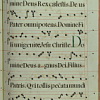 mine Deus Rex cælestis. De us
Pater omnipotens. Domine
Fili unigenite. Jesu Christe. Do
mine Deus. agnus Dei. Filius
Patris. Qui tollis peccata mundi